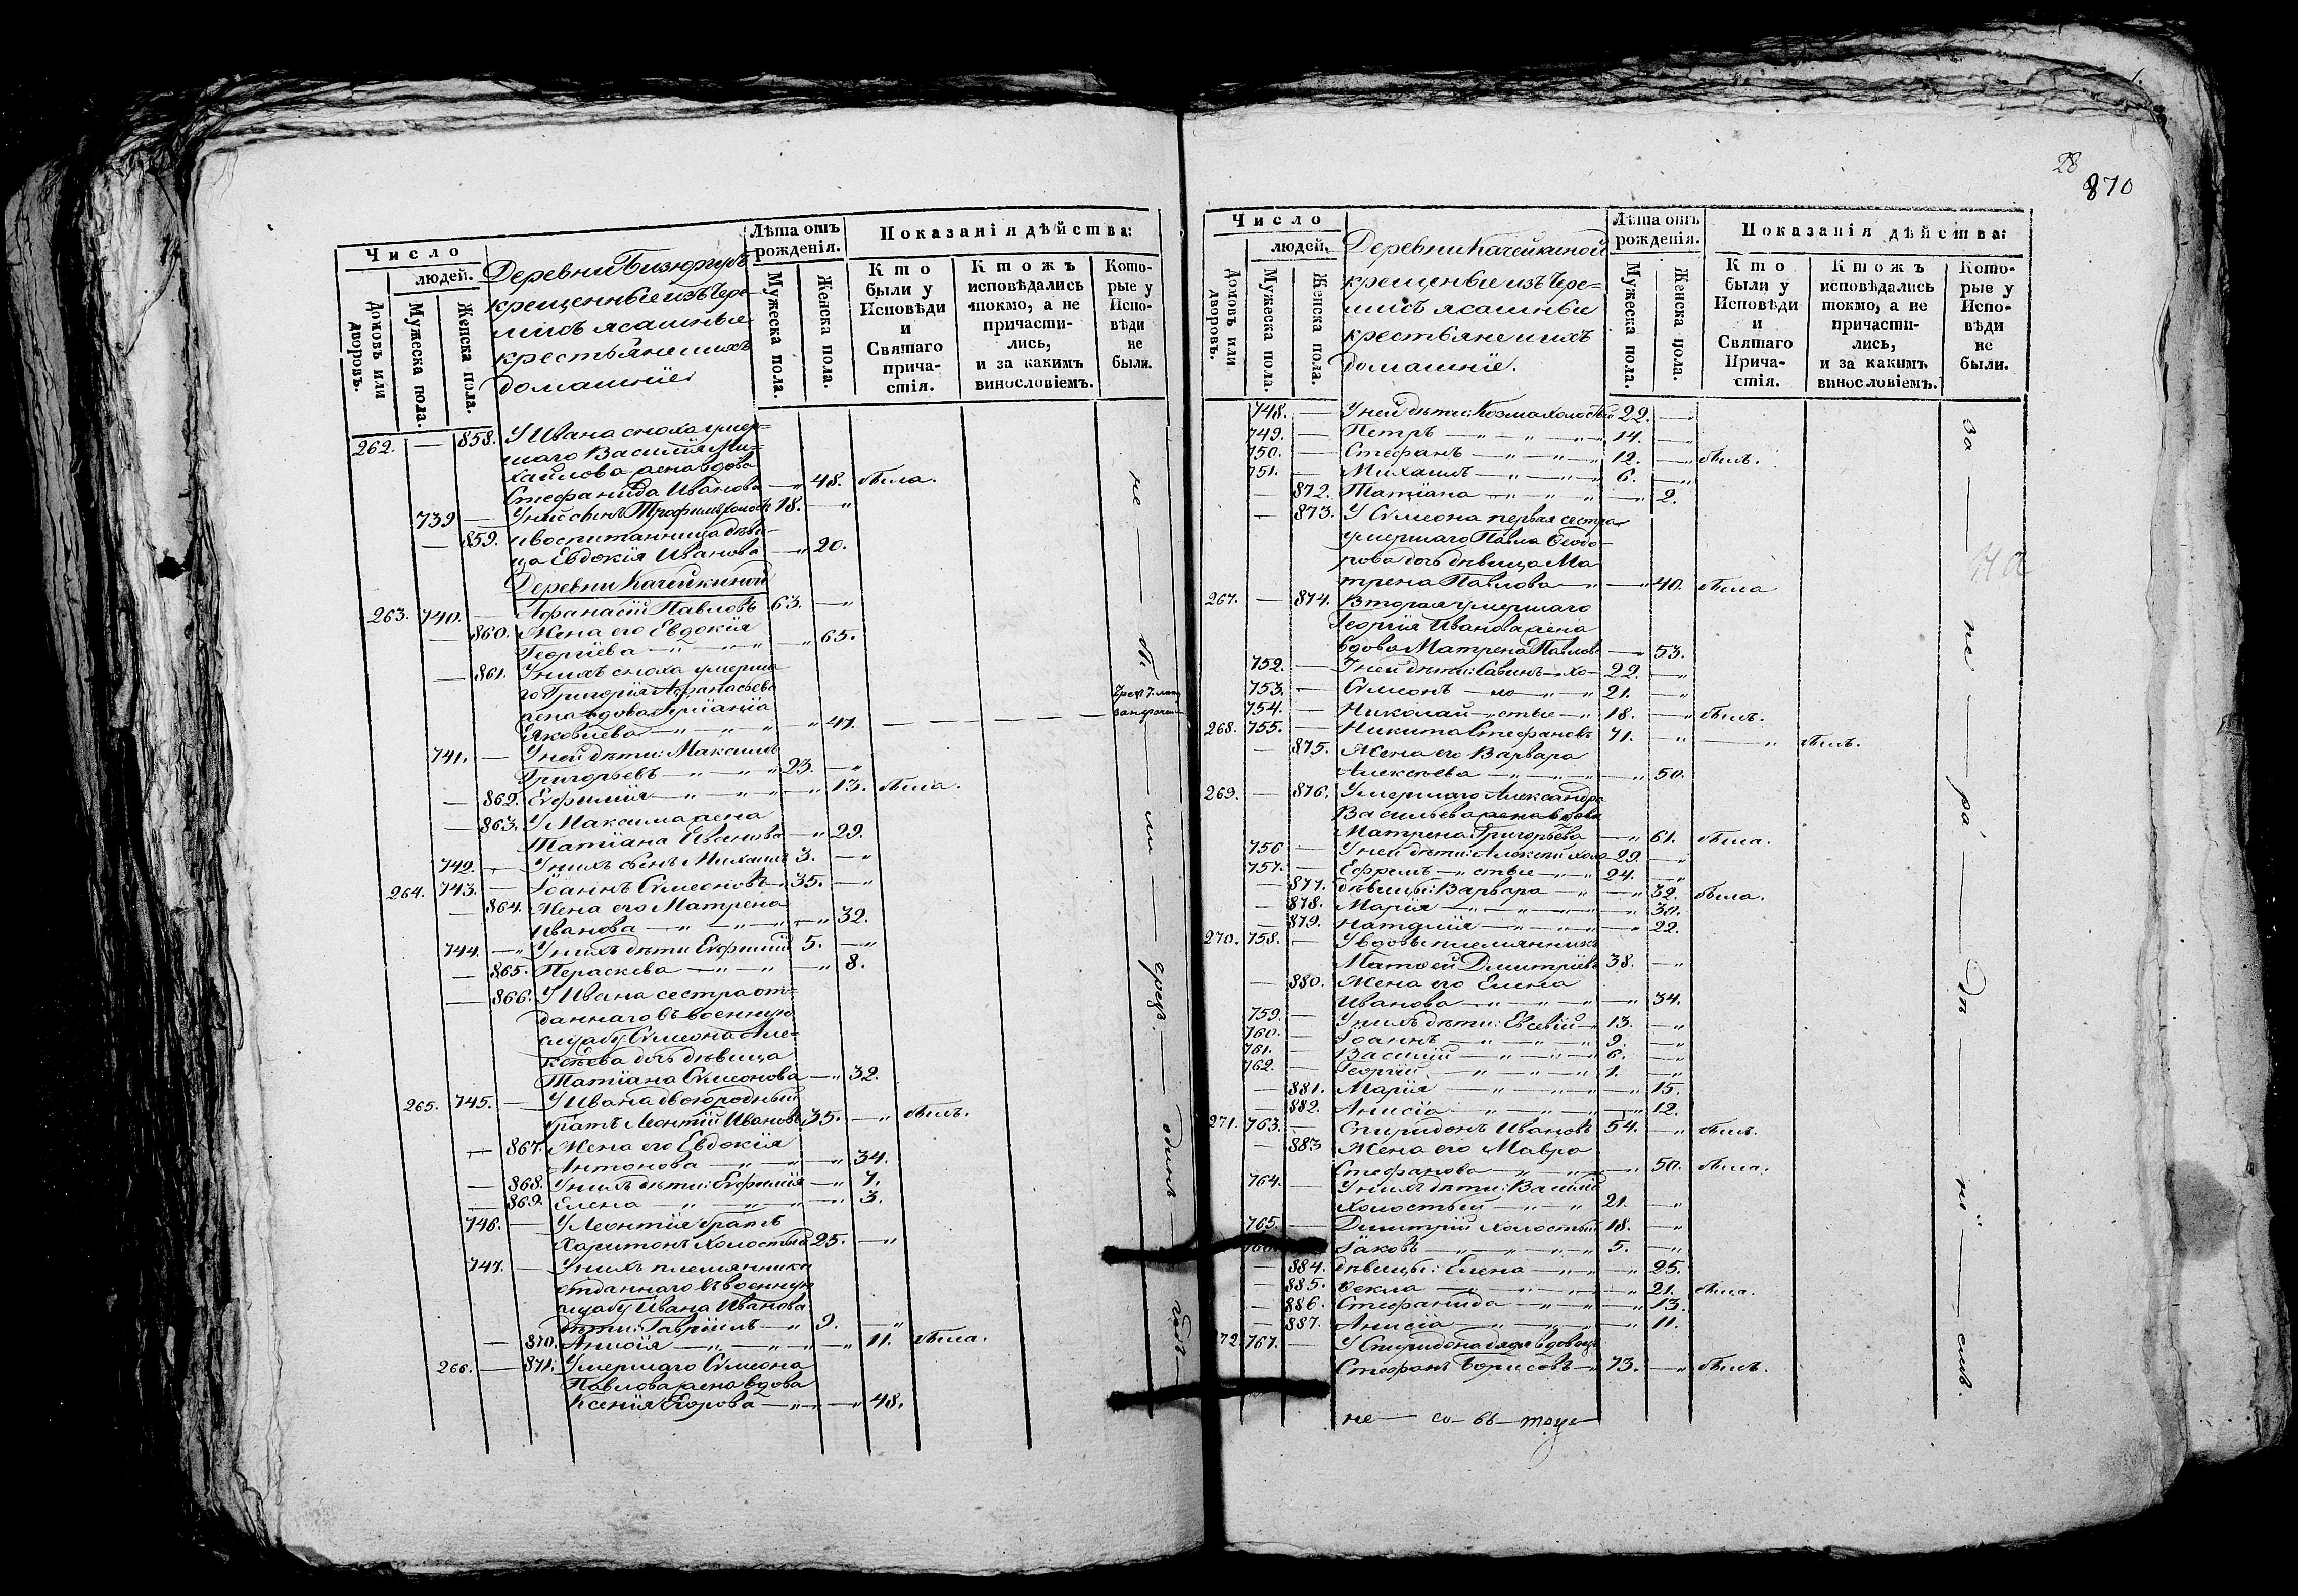 28
870
Число
людей.
Домовъ или дворовъ.
Мужеска пола.
Женска пола.
Деревни Бизюргубъ
крещенные изъ Чере-
мисъ ясашные
крестьяне и ихъ
домашніе.
Лѣта отъ рожденія.
Мужеска пола.
Женска пола.
Показанія дѣйства:
Кто были у Исповѣди и Святаго прича-стія.
Ктожъ исповѣдались токмо, а не причасти-лись, и за какимъ винословіемъ.
Кото-рые у Испо-вѣди не были.
262. — 858. У Ивана сноха умер-
шаго Василія Ми-
хайлова жена вдова
Стефанида Иванова — " 48. была.
739 — У ней сынъ Трофимъ холост 18. — "
— 859. и воспитанница дѣви-
ца Евдокія Иванова — " 20.
Деревни Качейкиной
263. 740. — Афанасій Павловъ 63. — "
— 860. Жена его Евдокія
Георгіева — " — " — " 65.
— 861. У нихъ сноха умерша-
го Григорія Афанасьева
жена вдова
Яковлева — " — " — " 47. — — — —
741. — У ней дѣти: Максимъ
Григорьевъ — " — " 23. — "
— 862. Евфимія — " — " — " 13. была.
— 863. У Максима жена
Татіана Иванова — " 29.
742. — У нихъ сынъ Михаилъ 3. — "
264. 743. — Іоаннъ Сѵмеоновъ 35. — "
— 864. Жена его Матрена
Иванова — " — " — " 32.
744. — У нихъ дѣти Евфимій 5. — "
— 865. Пераскева — " — " — " 8.
— 866. У Ивана сестра от-
даннаго въ военную
службу Сѵмеона Але-
ксѣева дочь дѣвица
Татіана Сѵмеонова — " 32.
265. 745. — У Ивана двоюродный
братъ Леонтій Ивановъ 35. — " былъ.
— 867. Жена его Евдокія
Антонова — " — " — " 34.
— 868. У нихъ дѣти: Евфимія — " 7.
— 869. Елена — " — " — " 3.
746. — У Леонтія братъ
Харитонъ холостый 25. — "
747. — У нихъ племянники
отданнаго въ военную
службу Ивана Иванова
дѣти: Гавріилъ — " 9. — "
— 870. Анисія — " — " — " 11. была.
266. — 871. Умершаго Сѵмеона
Павлова жена вдова
Ксенія Егорова — " — " 48.
не — бы — ли — чрезъ — одинъ — годъ —
Число
людей.
Домовъ или дворовъ.
Мужеска пола.
Женска пола.
Деревни Качейкиной
крещеные изъ Чере-
мисъ ясашные
крестьяне и ихъ
домашніе.
Лѣта отъ рожденія.
Мужеска пола.
Женска пола.
Показанія дѣйства:
Кто были у Исповѣди и Святаго Прича-стія.
Ктожъ исповѣдались токмо, а не причасти-лись, и за какимъ винословіемъ.
Кото-рые у Испо-вѣди не были.
748. — У ней дѣти: Козма холостый 22. — "
749. — Петръ — " — " — " 14. — "
750. — Стефанъ — " — " — " 12. — " былъ.
751. — Михаилъ — " — " 6. — "
— 872. Татіана — " — " — " 2.
— 873. У Сѵмеона первая сестра
умершаго Павла Ѳеодо-
рова дочь дѣвица Ма-
трена Павлова — " — " 40. была
267. — 874. Вторая умершаго
Георгія Иванова жена
вдова Матрена Павлова — 53.
752. — У ней дѣти: Савинъ — хо — 22. — "
753. — Сѵмеонъ — ло — " 21. — "
754. — Николай — стые — " 18. — " былъ.
268. 755. — Никита Стефановъ 71. — " — " былъ.
— 875. Жена его Варвара
Алексѣева — " — " — " 50.
269. — 876. Умершаго Александра
Васильева жена вдова
Матрена Григорьева — " 61. была.
756 — У ней дѣти: Алексій холо 29. — "
757. — Ефремъ — " стые — " 24. — "
— 877. дѣвицы: Варвара — " — " 32. была.
— 878. Марія — " — " — " 30.
— 879. Наталія — " — " — " 22.
270. 758. — У вдовы племянникъ
Матѳей Димитріевъ 38. — "
— 880. Жена его Елена
Иванова — " — " — " 34.
759. — У нихъ дѣти: Евсевій — 13. — "
760. — Іоаннъ — " — " — " 9. — "
761. — Василій — " — " — " 6. — "
762. — Георгій — " — " — " 1. — "
— 881. Марія — " — " — " 15.
— 882. Анисія — " — " — " 12.
271. 763. — Спиридонъ Ивановъ 54. — " былъ.
— 883 Жена его Мавра
Стефанова — " — " — " 50. была.
764. — У нихъ дѣти: Василій
холостый — " — " 21. — "
765. — Димитрій холостый 18. — "
Іаковъ — " — " — " 5. — "
— 884. дѣвицы: Елена — " — " 25.
— 885. Ѳекла — " — " — " 21. была.
— 886. Стефанида — " — " — " 13.
— 887. Анисія — " — " — " 11.
272. 767. — У Спиридона дядя вдовецъ
Стефанъ Борисовъ — " 73. — " былъ.
за — не — ра — дѣ — ні — емъ.
не — со — въ — толъ —